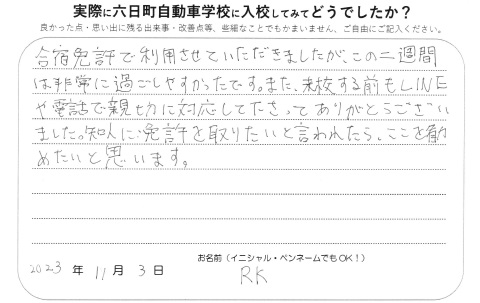 実際に六日町自動車学校に入校してみてどうでしたか？
良かった点・思い出に残る出来事・改善点等、些細なことでもかまいません、ご自由にご記入ください。
合宿免許で利用させていただきましたが、この二週間
は非常に過ごしやすかったです。また、来校する前もLINE
や電話で親切に対応して下さってありがとうござい
ました。知人に免許を取りたいと言われたら、ここを勧
めたいと思います。
お名前（イニシャル・ペンネームでもOK！）
2023年 11月 3日 RK